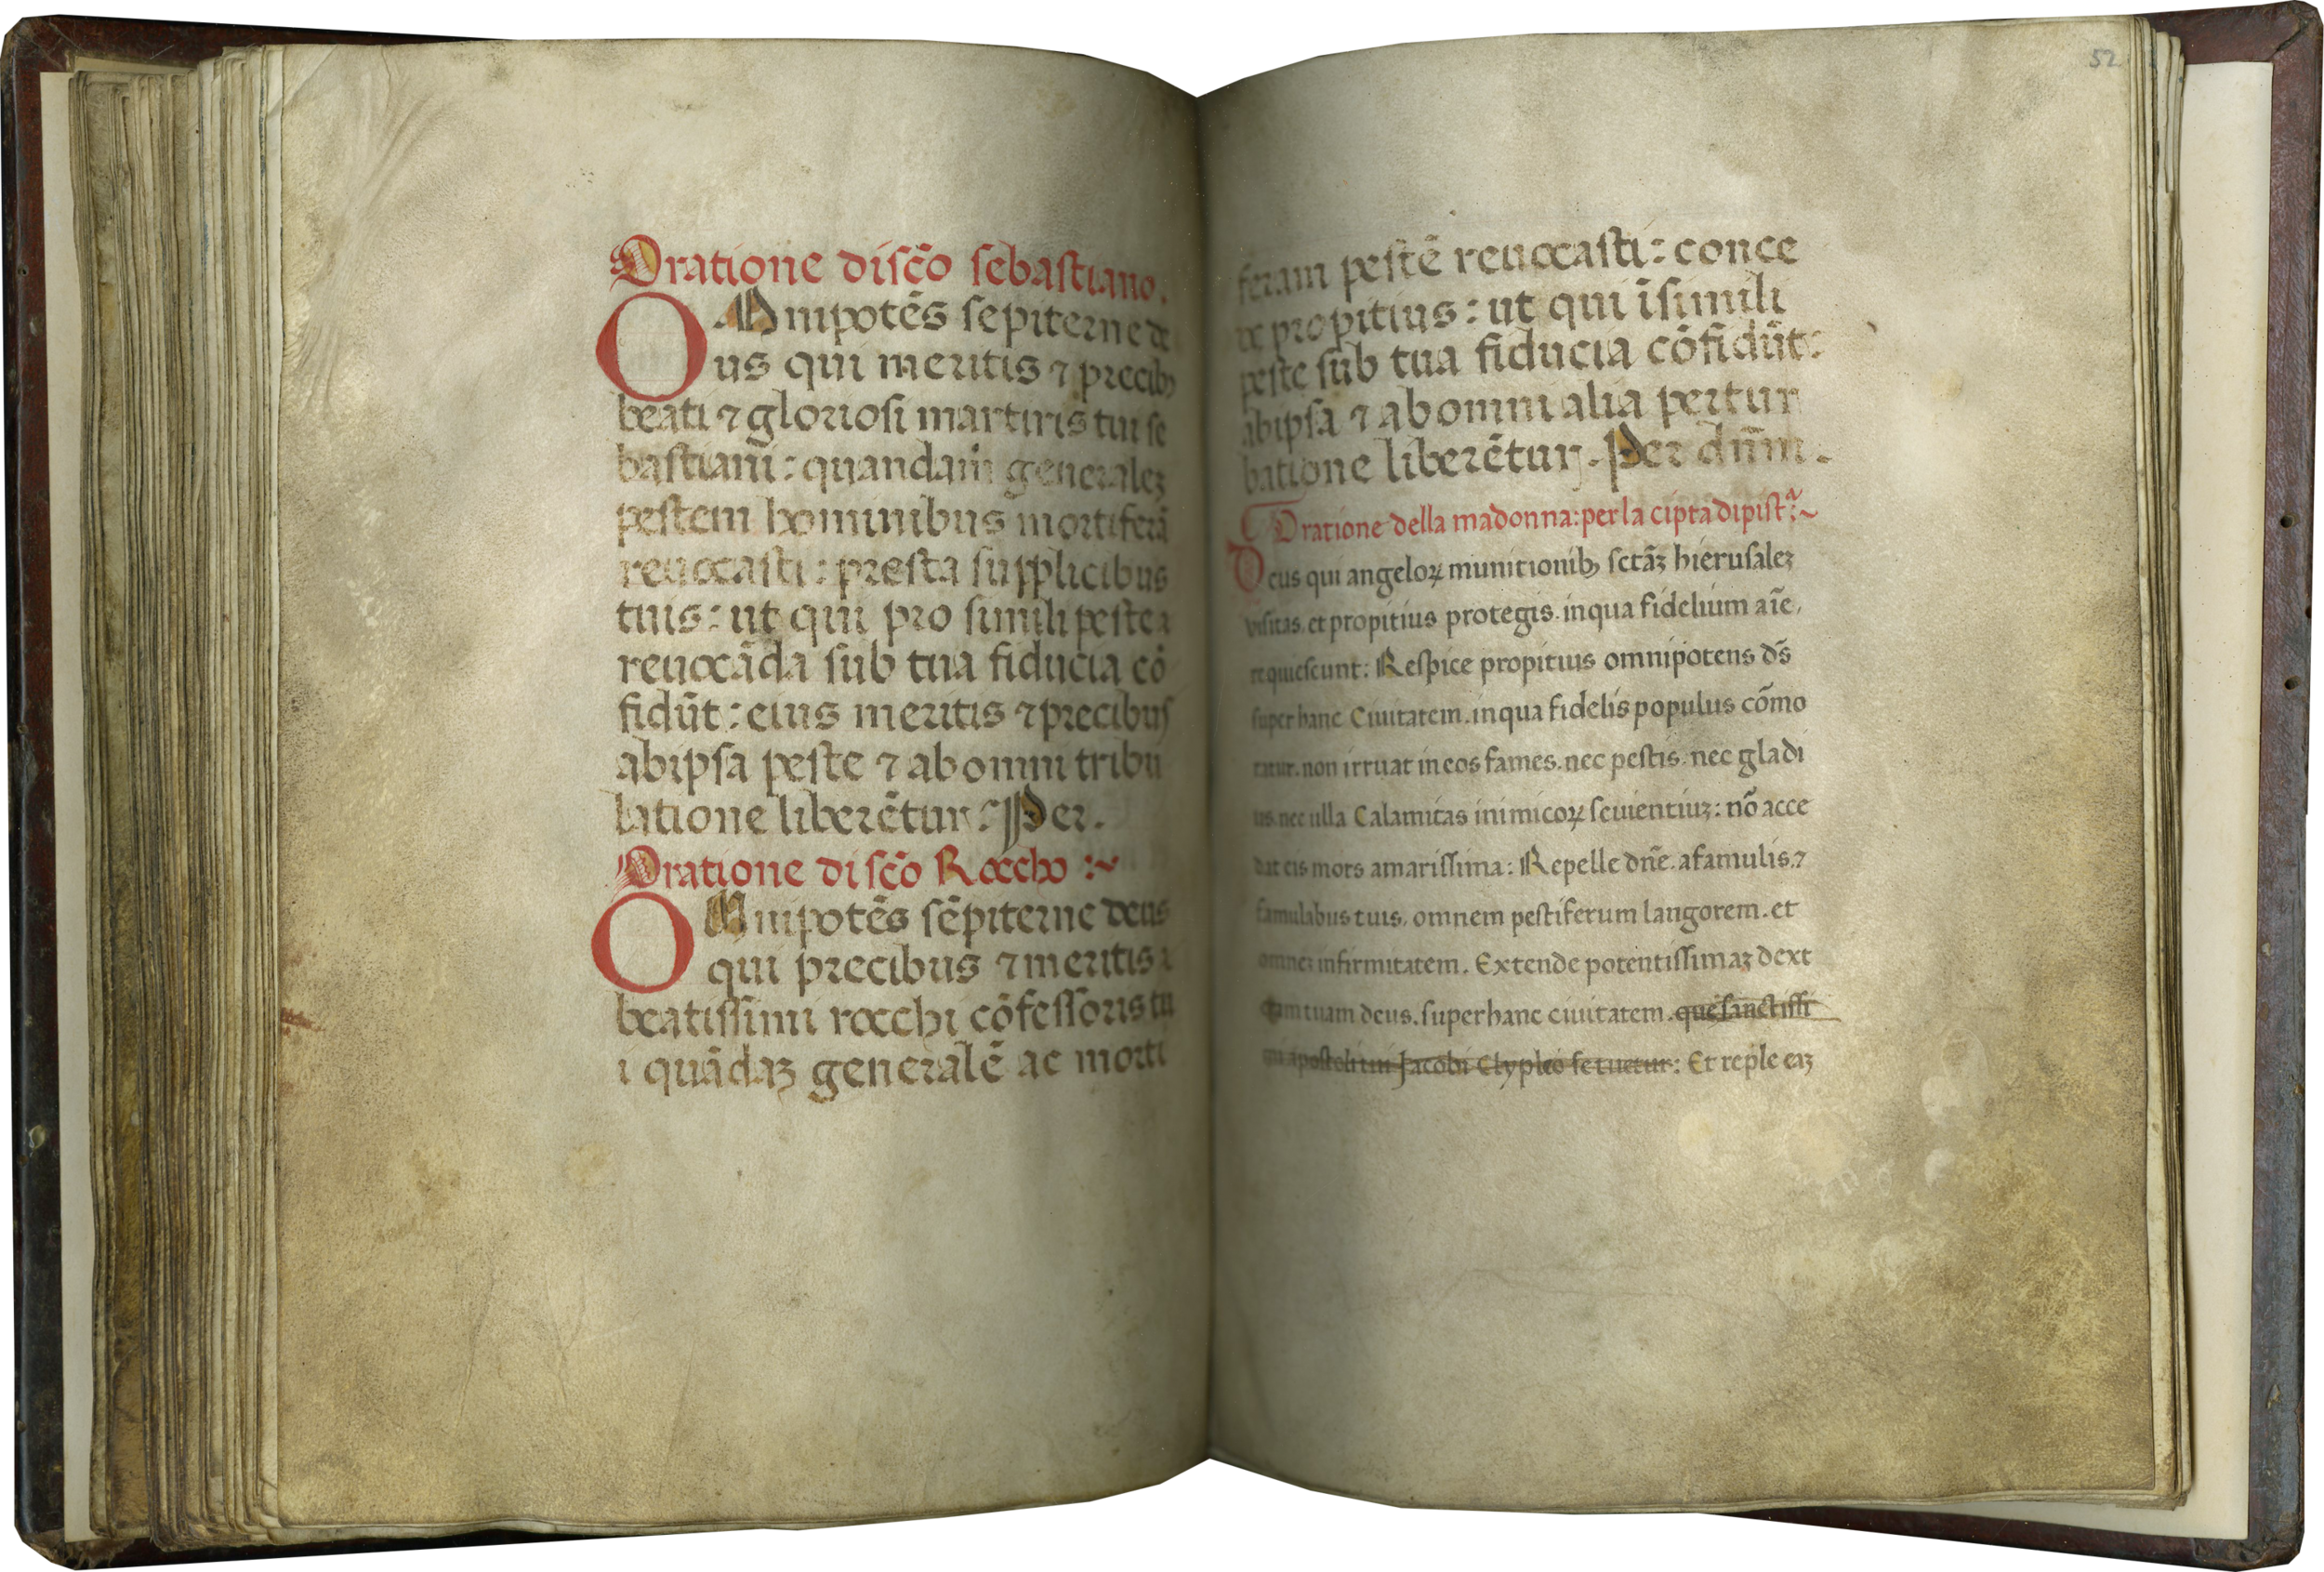 Oratione di scō sebastiano.
OMnipotēs sepiterne de
us qui meritis ⁊ precibꝰ
beati ⁊ gloriosi martiris tui se
bastiani: quandam generaleꝫ
pestem hominibus mortiferā
reuocasti: presta supplicibus
tuis: ut qui pro simili peste
reuocāda sub tua fiducia cō
fidūt: eius meritis ⁊ precibus
ab ipsa peste ⁊ ab omni tribu
latione liberētur: Per.
Oratione di scō Roccho :~
OMnipotēs sēpiterne deus
qui precibus ⁊ meritis
beatissimi rocchi cōfessoris tu
i quādaꝫ generalē ac morti
52
feram pestē reuocasti: conce
de propitius: ut qui īsimili
peste sub tua fiducia cōfidūt:
ab ipsa ⁊ ab omni alia pertur
batione liberētur. Per dn̄m.
Oratione della madonna: per la cipta di pistᵃ:~
Deus qui angeloꝝ munitionibꝰ sctāꝫ hierusaleꝫ
visitas. et propitius protegis. in qua fidelium aīe.
requiescunt: Respice propitius omnipotens ds̄
super hanc Ciuitatem. in qua fidelis populus cōmo
ratur. non irruat in eos fames. nec pestis. nec gladi
us. nec ulla Calamitas inimicoꝝ seuientiuꝫ: nō acce
dat eis mors amarissima: Repelle dn̄e. a famulis. ⁊
famulabus tuis. omnem pestiferum langorem. et
omneꝫ infirmitatem. Extende potentissimaꝫ dext
eram tuam deus. super hanc ciuitatem. que sanctissi
mi apostoli tui Jacobi Clypleo se tuetur: Et reple eaꝫ